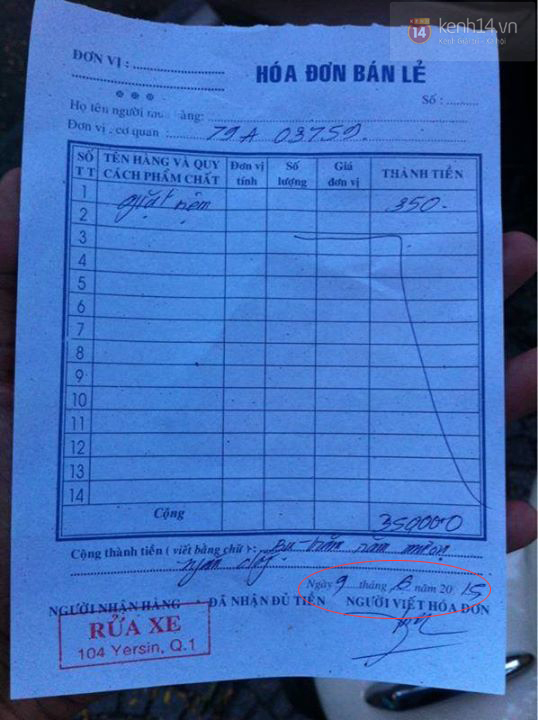 kenh14.vn
ĐƠN VỊ :
HÓA ĐƠN BÁN LẺ
Số :
Họ tên người mua hàng:
Đơn vị cơ quan 79A 03759.
SỐ TT TÊN HÀNG VÀ QUY CÁCH PHẨM CHẤT Đơn vị tính Số lượng Giá đơn vị THÀNH TIỀN
1 giặt nệm 350.
2
3
4
5
6
7
8
9
10
11
12
13
14
Cộng 350000
Cộng thành tiền ( viết bằng chữ ): Ba trăm năm mươi
ngàn
Ngày 9 tháng 6 năm 2015
NGƯỜI NHẬN HÀNG ĐÃ NHẬN ĐỦ TIỀN NGƯỜI VIẾT HÓA ĐƠN
RỬA XE
104 Yersin, Q.1